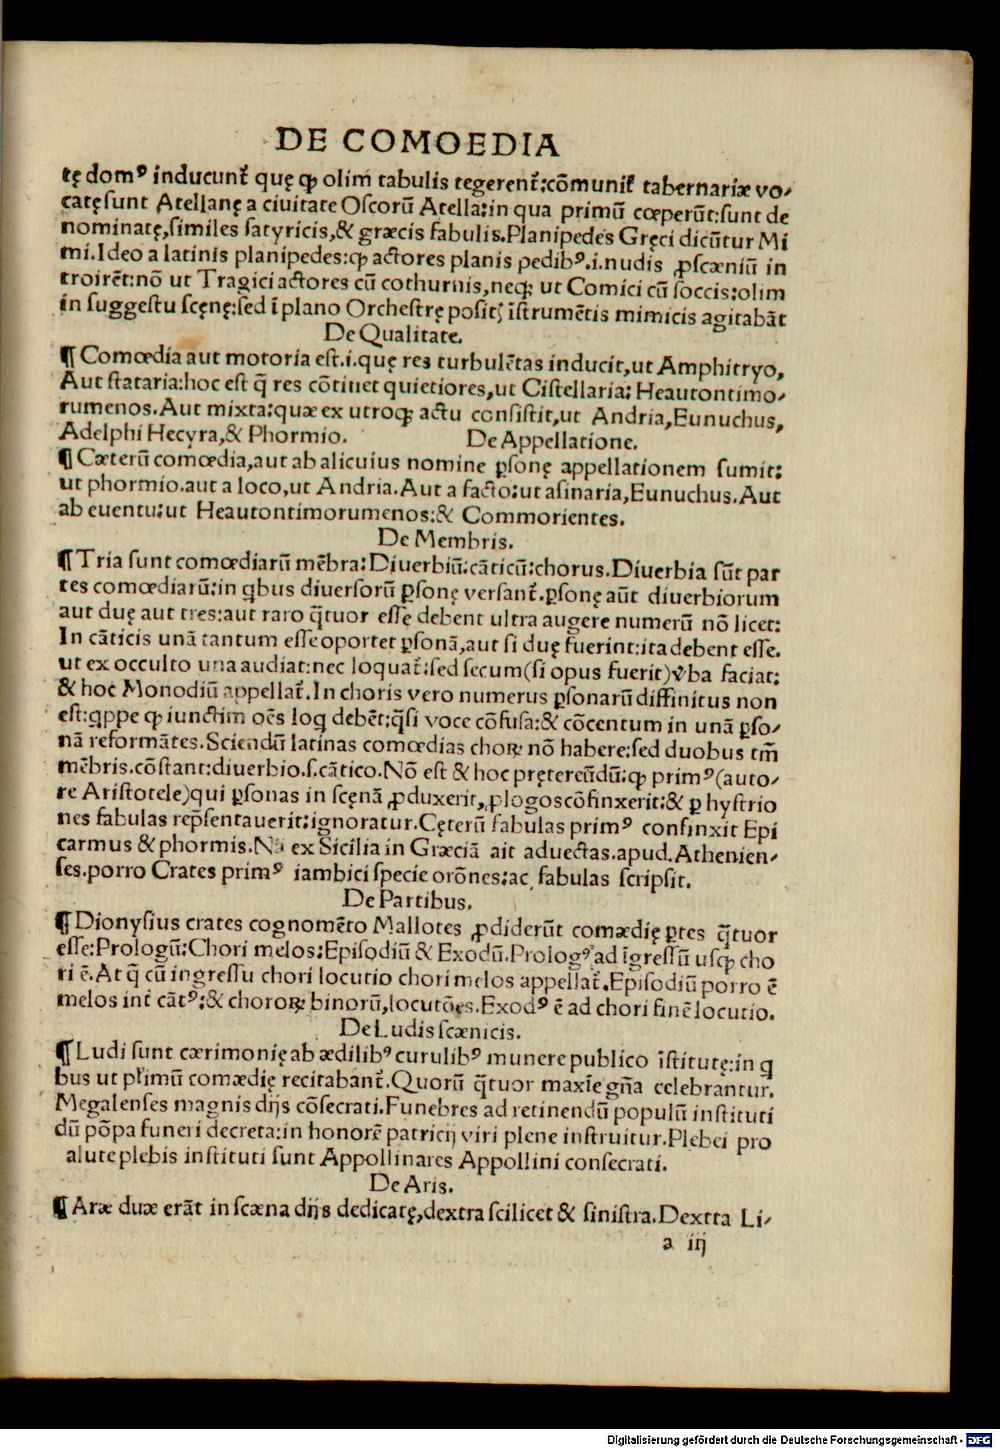 DE COMOEDIA
tę domꝰ inducunt̃ quę ꝙ olim tabulis tegerent̃:cōmunit̃ tabernariæ vo⸗
catę sunt Atellanę a ciuitate Oscorū Atella:in qua primū cœperūt:sunt de
nominatę,similes satyricis,& græcis fabulis.Planipedes Gręci dicūtur Mi
mi.Ideo a latinis planipedes:ꝙ actores planis pedibꝰ.i.nudis ꝓscæniū in
troirēt:nō ut Tragici actores cū cothurnis,neqꝫ ut Comici cū soccis:olim
in suggestu scęnę:sed ī plano Orchestrę positꝭ īstrumētis mimicis agitabāt
De Qualitate.
¶ Comœdia aut motoria est.i.quę res turbulētas inducit,ut Amphitryo,
Aut stataria:hoc est q̄ res cōtinet quietiores,ut Cistellaria: Heautontimo⸗
rumenos.Aut mixta:quæ ex utroqꝫ actu consistit,ut Andria,Eunuchus,
Adelphi Hecyra,& Phormio. De Appellatione.
¶ Cæterū comœdia,aut ab alicuius nomine ꝑsonę appellationem sumit:
ut phormio.aut a loco,ut Andria.Aut a facto:ut asinaria,Eunuchus.Aut
ab euentu:ut Heautontimorumenos:& Commorientes.
De Membris.
¶ Tria sunt comœdiarū mēbra:Diuerbiū:cāticū:chorus.Diuerbia sūt par
tes comœdiarū:in qbus diuersorū ꝑsonę versant̃.ꝑsonę aūt diuerbiorum
aut duę aut tres:aut raro q̄tuor esse debent ultra augere numerū nō licet:
In cāticis unā tantum esse oportet ꝑsonā,aut si duę fuerint:ita debent esse.
ut ex occulto una audiat:nec loquat̃:sed secum(si opus fuerit)v̄ba faciat:
& hoc Monodiū appellat̃.In choris vero numerus ꝑsonarū diffinitus non
est:qppe ꝙ iunctim oēs loq debēt:q̄si voce cōfusa:& cōcentum in unā ꝑso⸗
nā reformātes.Sciendū latinas comœdias choꝝ nō habere:sed duobus tm̄
mēbris.cōstant:diuerbio.s.cātico.Nō est & hoc pretereūdū:ꝙ primꝰ(auto⸗
re Aristotele)qui ꝑsonas in scęnā ꝓduxerit,ꝓlogos cōfinxerit:& ꝑ hystrio
nes fabulas rep̄sentauerit:ignoratur.Cęterū fabulas primꝰ confinxit Epi
carmus & phormis.Nā ex Sicilia in Græciā ait aduectas.apud.Athenien⸗
ses.porro Crates primꝰ iambici specie orōnes:ac fabulas scripsit.
De Partibus.
¶ Dionysius crates cognomēto Mallotes ꝓdiderūt comædię ꝑtes q̄tuor
esse:Prologū:Chori melos:Episodiū & Exodū.Prologꝰ ad īgressū usqꝫ cho
ri ē.At q̄ cū ingressu chori locutio chori melos appellat̃.Episodiū porro ē
melos int̃ cātꝰ:& choroꝝ binorū,locutōes.Exodꝰ ē ad chori finē locutio.
De Ludis scænicis.
¶ Ludi sunt cærimonię ab ædilibꝰ curulibꝰ munere publico īstitutę:in q
bus ut plimū comædię recitabant̃.Quorū q̄tuor maxīe gn̄a celebrantur.
Megalenses magnis dijs cōsecrati.Funebres ad retinendū populū instituti
dū pōpa funeri decreta:in honorē patricij viri plene instruitur.Plebei pro
alute plebis instituti sunt Appollinares Appollini consecrati.
De Aris.
¶ Aræ duæ erāt in scæna dijs dedicatę,dextra scilicet & sinistra.Dextra Li⸗
a iij
Digitalisierung gefördert durch die Deutsche Forschungsgemeinschaft - DFG